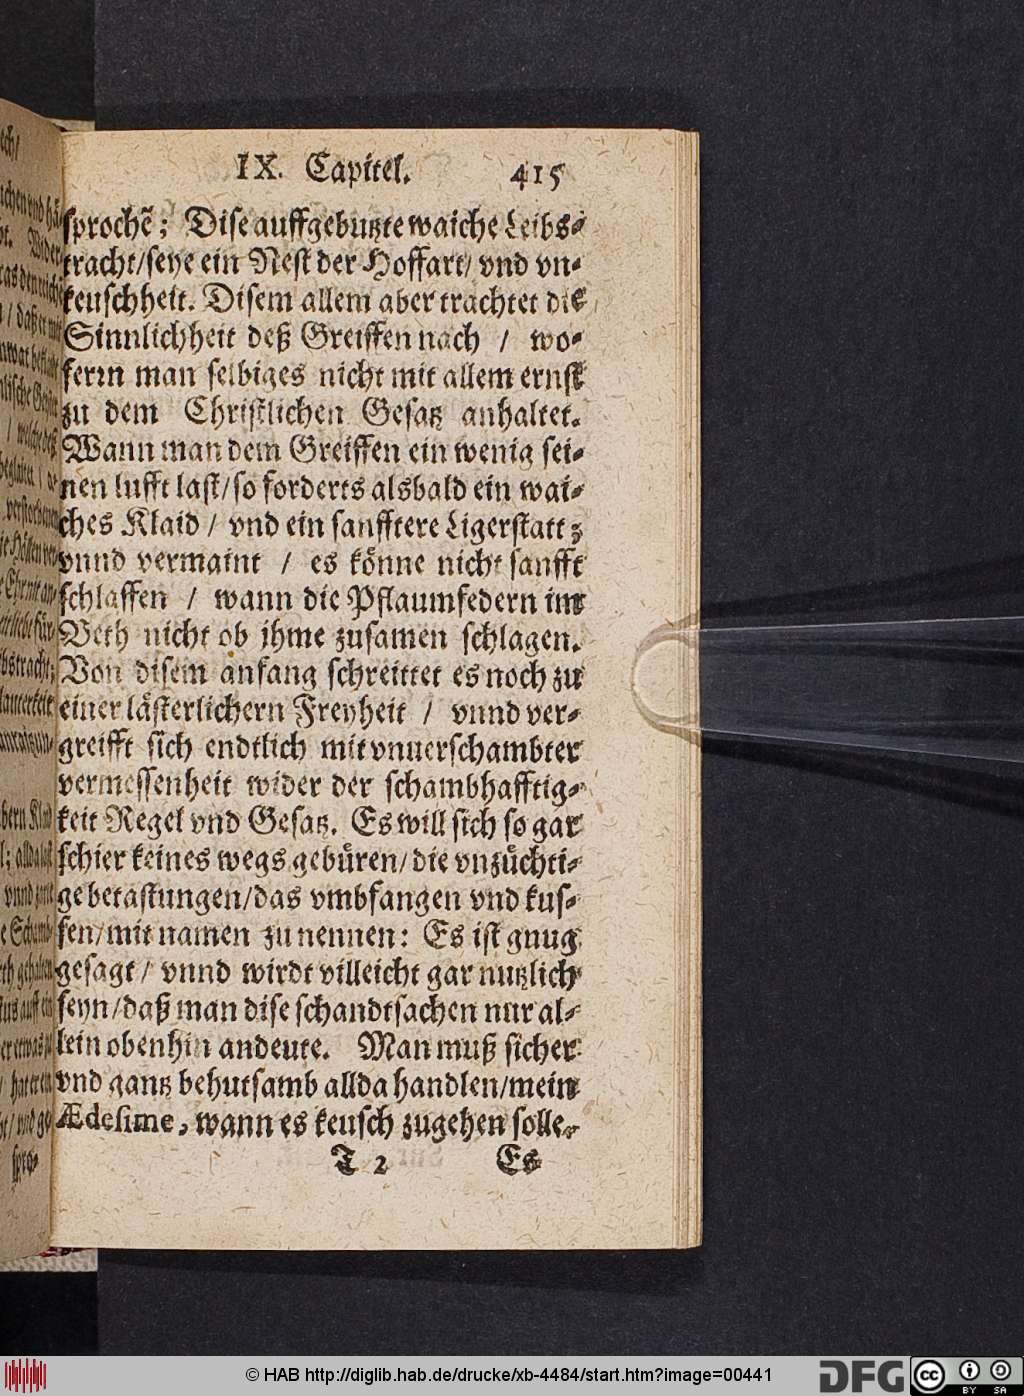 IX. Capitel. 415
sprochẽ; Dise auffgebutzte waiche Leibs-
tracht/seye ein Nest der Hoffart/ vnd vn-
keuschheit. Disem allem aber trachtet die
Sinnlichheit deß Greiffen nach / wo-
ferrn man selbiges nicht mit allem ernst
zu dem Christlichen Gesatz anhaltet.
Wann man dem Greiffen ein wenig sei-
nen lufft last/so forderts alsbald ein wai-
ches Klaid / vnd ein sanfftere Ligerstatt;
vnnd vermaint / es könne nicht sanfft
schlaffen / wann die Pflaumfedern im
Beth nicht ob jhme zusamen schlagen.
Von disem anfang schreittet es noch zu
einer lästerlichern Freyheit / vnnd ver-
greifft sich endtlich mit vnuerschambter
vermessenheit wider der schambhafftig-
keit Regel vnd Gesatz. Es will sich so gar
schier keines wegs gebüren/die vnzüchti-
ge betastungen/das vmbfangen vnd kus-
sen/mit namen zu nennen: Es ist gnug
gesagt / vnnd wirdt villeicht gar nutzlich
seyn/daß man dise schandtsachen nur al-
lein obenhin andeute. Man muß sicher
vnd gantz behutsamb allda handlen/mein
Ædesime, wann es keusch zugehen solle.
T 2 Es
© HAB http://diglib.hab.de/drucke/xb-4484/start.htm?image=00441
DFG
cc
BY SA